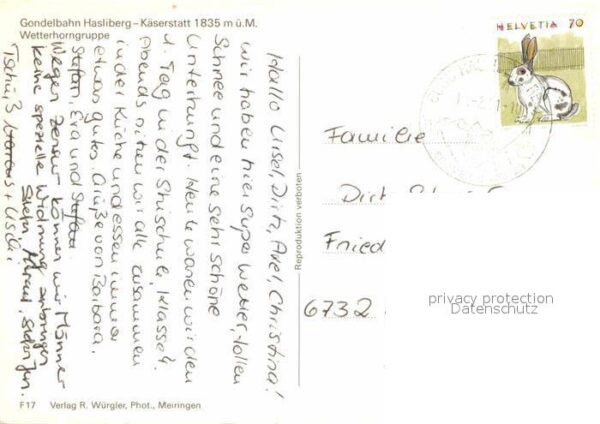 Gondelbahn Hasliberg – Käserstatt 1835 m ü.M.
Wetterhorngruppe
HELVETIA 70
Hallo Ursel, Dirk, Axel, Christina!
Wir haben hier super Wetter, tollen
Schnee und eine sehr schöne
Unterkunft. Heute waren wir den
4. Tag in der Skischule, Klasse!
Abends sitzen wir alle zusammen
in der Küche und essen immer
etwas gutes. Grüße von Barbara
Stefan, Eva und Stefan.
Wegen Zensur können wir Männer
keine spezielle Widmung anbringen
Tschüß + Uschi
Familie
Dirk
Fried
6732
Reproduktion verboten
privacy protection
Datenschutz
F17 Verlag R. Würgler, Phot., Meiringen